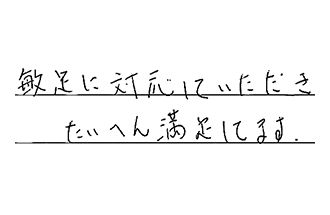 敏足に対応していただき
たいへん満足してます.